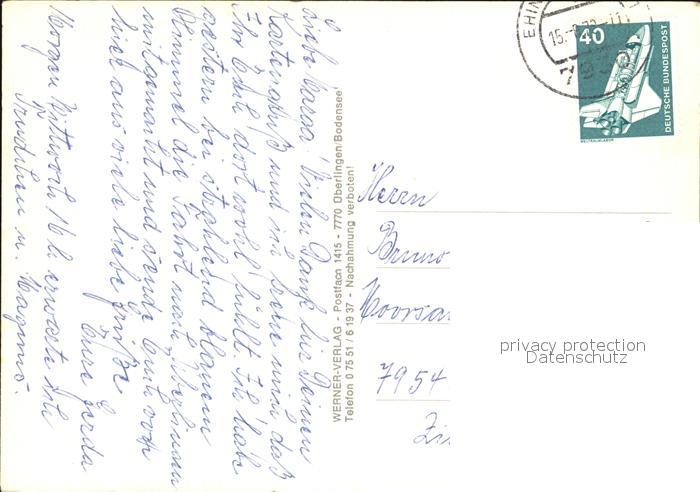 Liebe Mama! Vielen Dank für Deinen
Kartengruß und ich freue mich, daß
Ihr Euch dort wohl fühlt. Ich habe
gestern bei strahlend blauem
Himmel die Fahrt nach
mitgemacht und sende Euch von
hier aus viele liebe Grüße
Eure Gerda
Morgen Mittwoch 16 h erwarte ich
Trudchen u. Magnus.
WERNER-VERLAG - Postfach 1415 - 7770 Überlingen/Bodensee
Telefon 0 75 51 / 6 19 37 - Nachahmung verboten!
EHIN
15.-
40
DEUTSCHE BUNDESPOST
WELTRAUMLABOR
Herrn
Bruno
Moorsa
7954
privacy protection
Datenschutz